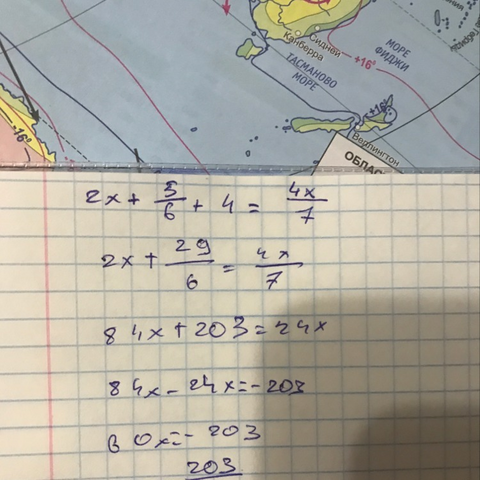 Сидней
Канберра
МОРЕ
ФИДЖИ
+16°
ТАСМАНОВО
МОРЕ
+16°
-16°
Веллингтон
ОБЛАС
2x + 5/6 + 4 = 4x/7
2x + 29/6 = 4x/7
84x + 203 = 24x
84x - 24x = -203
60x = - 203
203